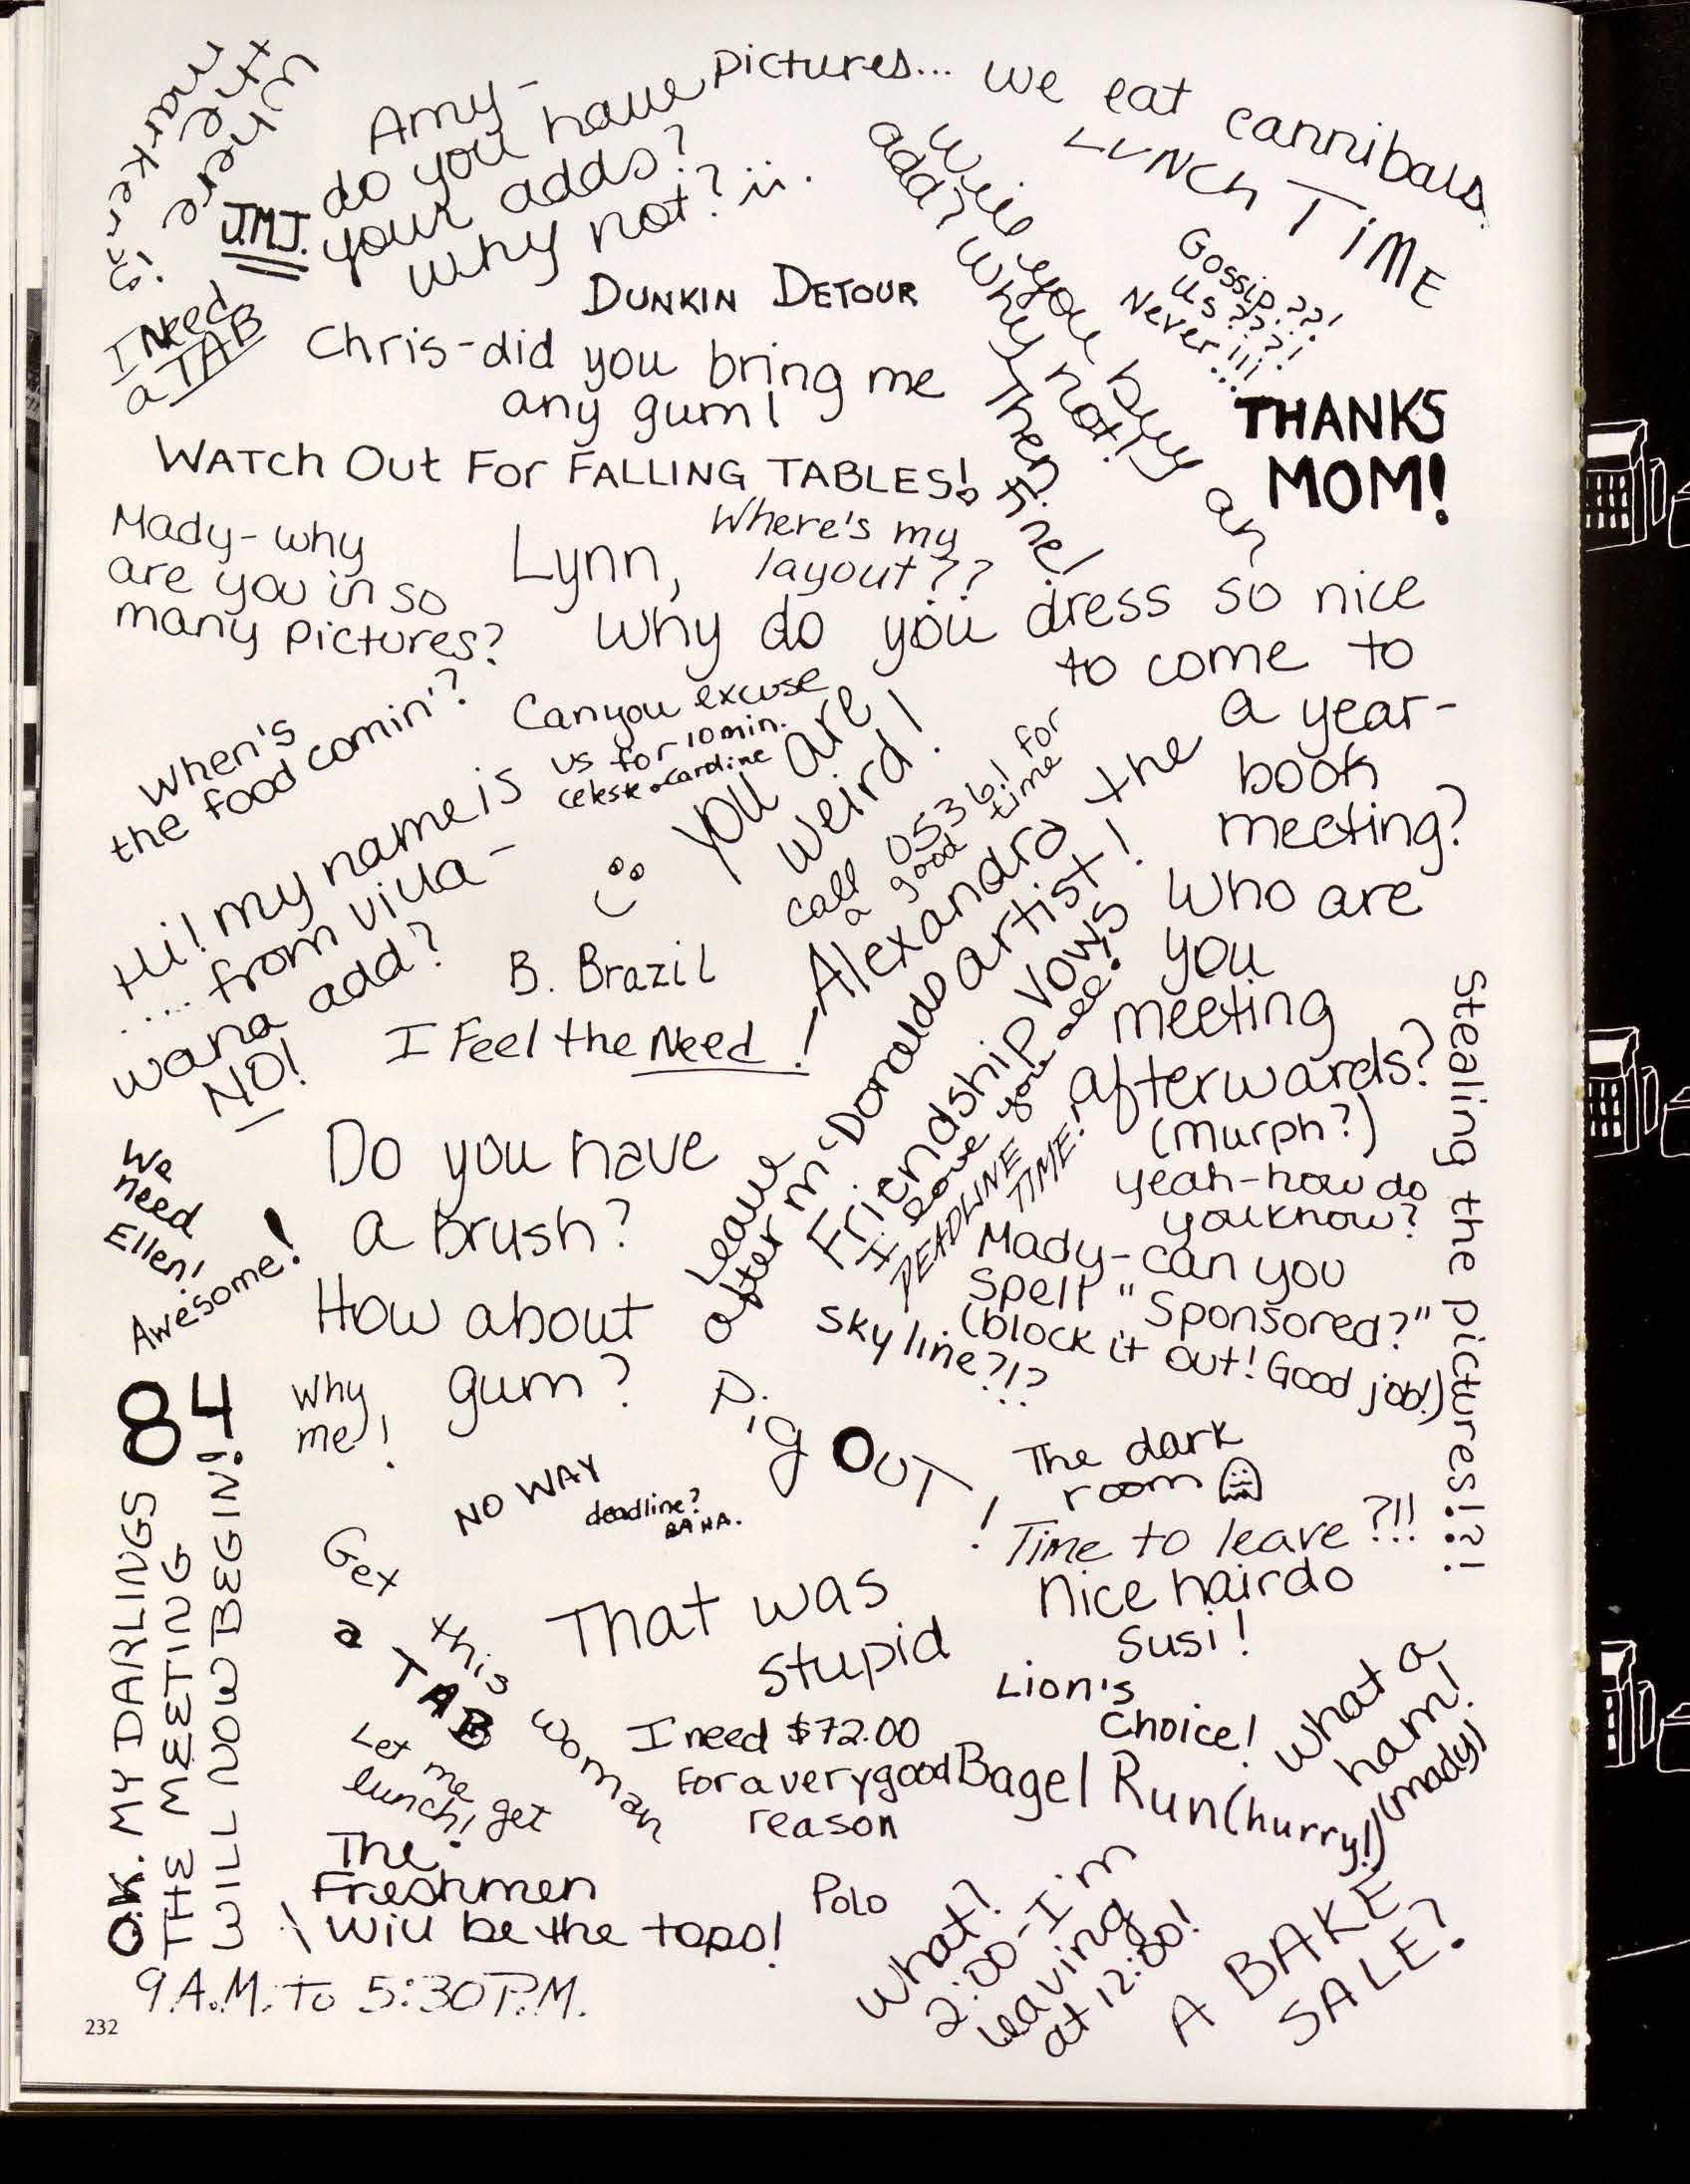 where
the
markers!
Amy-
do you have pictures...
your adds?
why not?
we eat cannibals.
LUNCH TIME
J.M.J.
I Need
a TAB
DUNKIN DETOUR
Will you buy an
add? Why not!
Then fine!
Gossip??!
Us???!
Never!!!...
THANKS
MOM!
Chris-did you bring me
any gum!
WATCH OUT FOR FALLING TABLES!
Mady-why
are you in so
many pictures?
Where's my
layout??
Lynn,
why do you dress so nice
to come to
a year-
book
meeting?
Who are
you
meeting
afterwards?
(Murph?)
yeah-how do
you know?
When's
the food comin'?
Can you excuse
us for 10 min.
Celeste & Caroline
You are
weird!
call 05361 for
a good time
Alexandra the
artist!
Hi! my name is
..... from villa-
wana add?
NO!
B. Brazil
I Feel the Need!
Leave
after McDonalds
Friendship Vows
I love you all!
DEADLINE
TIME!
Stealing the pictures!?!
We
need
Ellen!
Awesome!
Do you have
a brush?
How about
gum?
Mady-can you
spell "Sponsored?"
(block it out! Good job!)
Skyline?!?
84
Why
me!
Pig OUT!
The dark
room
NO WAY
deadline?
HA HA.
Time to leave?!!
Nice hairdo
Susi!
O.K. MY DARLINGS
THE MEETING
WILL NOW BEGIN!
Get this woman
a TAB
That was
stupid
Lion's
Choice!
What a
ham!
(mady)
Let me get
lunch!
I need $72.00
for a very good
reason
Bagel Run (hurry!)
The
Freshmen
will be the tops!
Polo
What?
2:00-I'm
leaving
at 12:00!
A BAKE
SALE?
9 A.M. to 5:30 P.M.
232